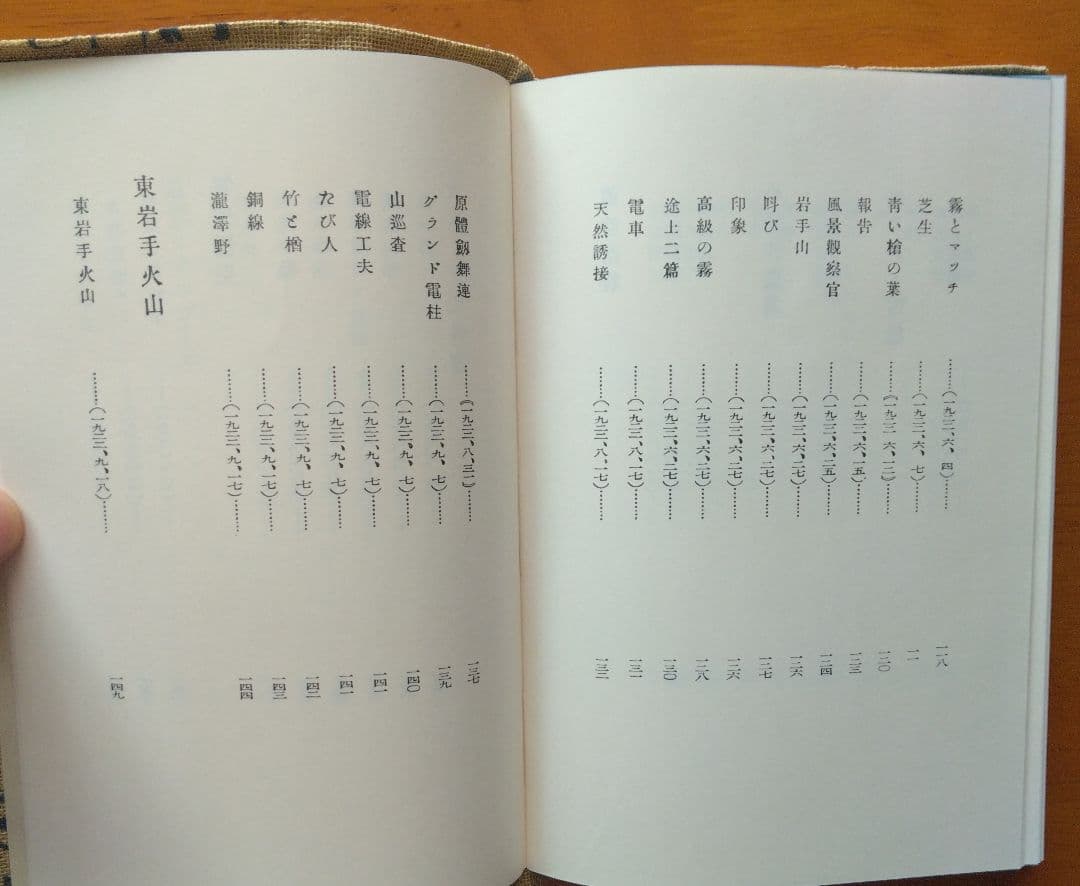 霧とマッチ………(一九二二、六、四)………一一八
芝生………(一九二二、六、七)………一一
青い槍の葉………《一九二二 六、一二》………一二〇
報告………(一九二二、六、一五)………一二三
風景觀察官………(一九二二、六、二五)………一二四
岩手山………(一九二二、六、二七)………一二六
呌び………(一九二二、六、二七)………一二七
印象………(一九二二、六、二七)………一二六
高級の霧………(一九二二、六、二七)………一二八
途上二篇………(一九二二、六、二七)………一三〇
電車………(一九二二、八、一七)………一三一
天然誘接………(一九二二、八、一七)………一三二
原體劔舞連………《一九二二、八、三一》………一三七
グランド電柱………(一九二二、九、七)………一三九
山巡査………(一九二二、九、七)………一四〇
電線工夫………(一九二二、九、七)………一四一
たび人………(一九二二、九、七)………一四一
竹と楢………(一九二二、九、七)………一四二
銅線………(一九二二、九、一七)………一四三
瀧澤野………(一九二二、九、一七)………一四四
東岩手火山
東岩手火山………(一九二二、九、一八)………一四九